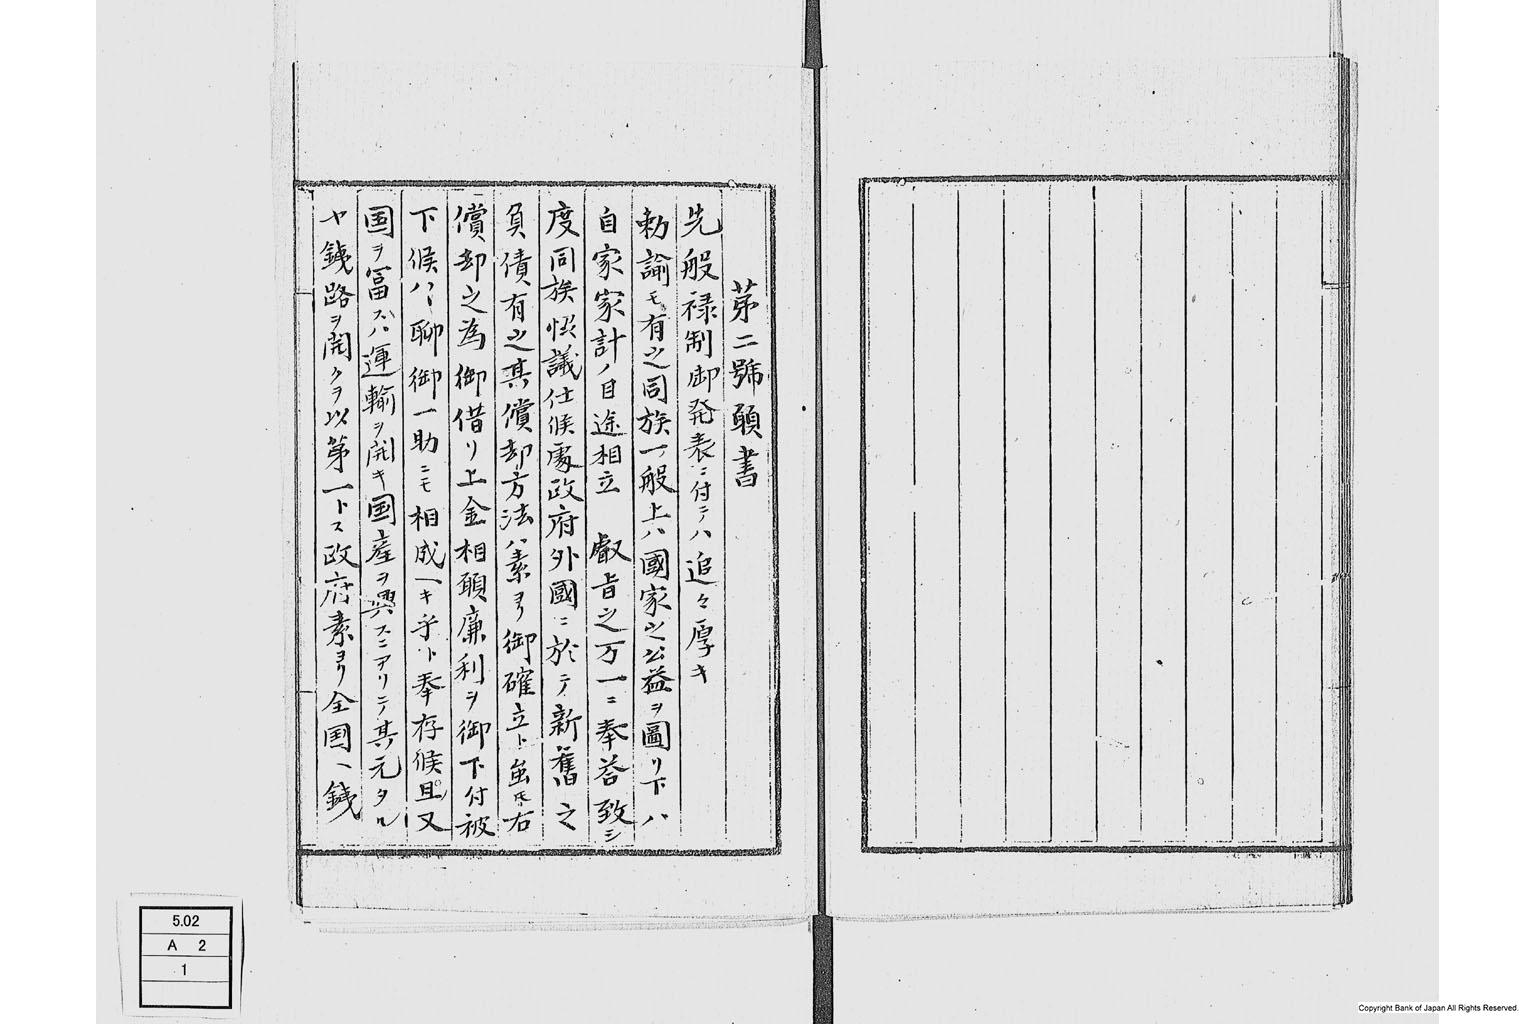 第二號願書
先般禄制御発表ニ付テハ追々厚キ
勅諭モ有之同族一般上ハ國家之公益ヲ圖リ下ハ
自家家計ノ目途相立 叡旨之万一ニ奉答致シ
度同族怾議仕候處政府外國ニ於テ新舊之
負債有之其償却方法ハ素ヨリ御確立ト虽𪜈右
償却之為御借リ上金相願廉利ヲ御下付被
下候ハヽ聊御一助ニモ相成ヘキ乎ト奉存候且又
国ヲ冨スハ運輸ヲ開キ国産ヲ興スニアリニテ其元タル
ヤ銕路ヲ開クヲ以第一トス政府素ヨリ全国ヘ銕
5.02
A 2
1
Copyright Bank of Japan All Rights Reserved.